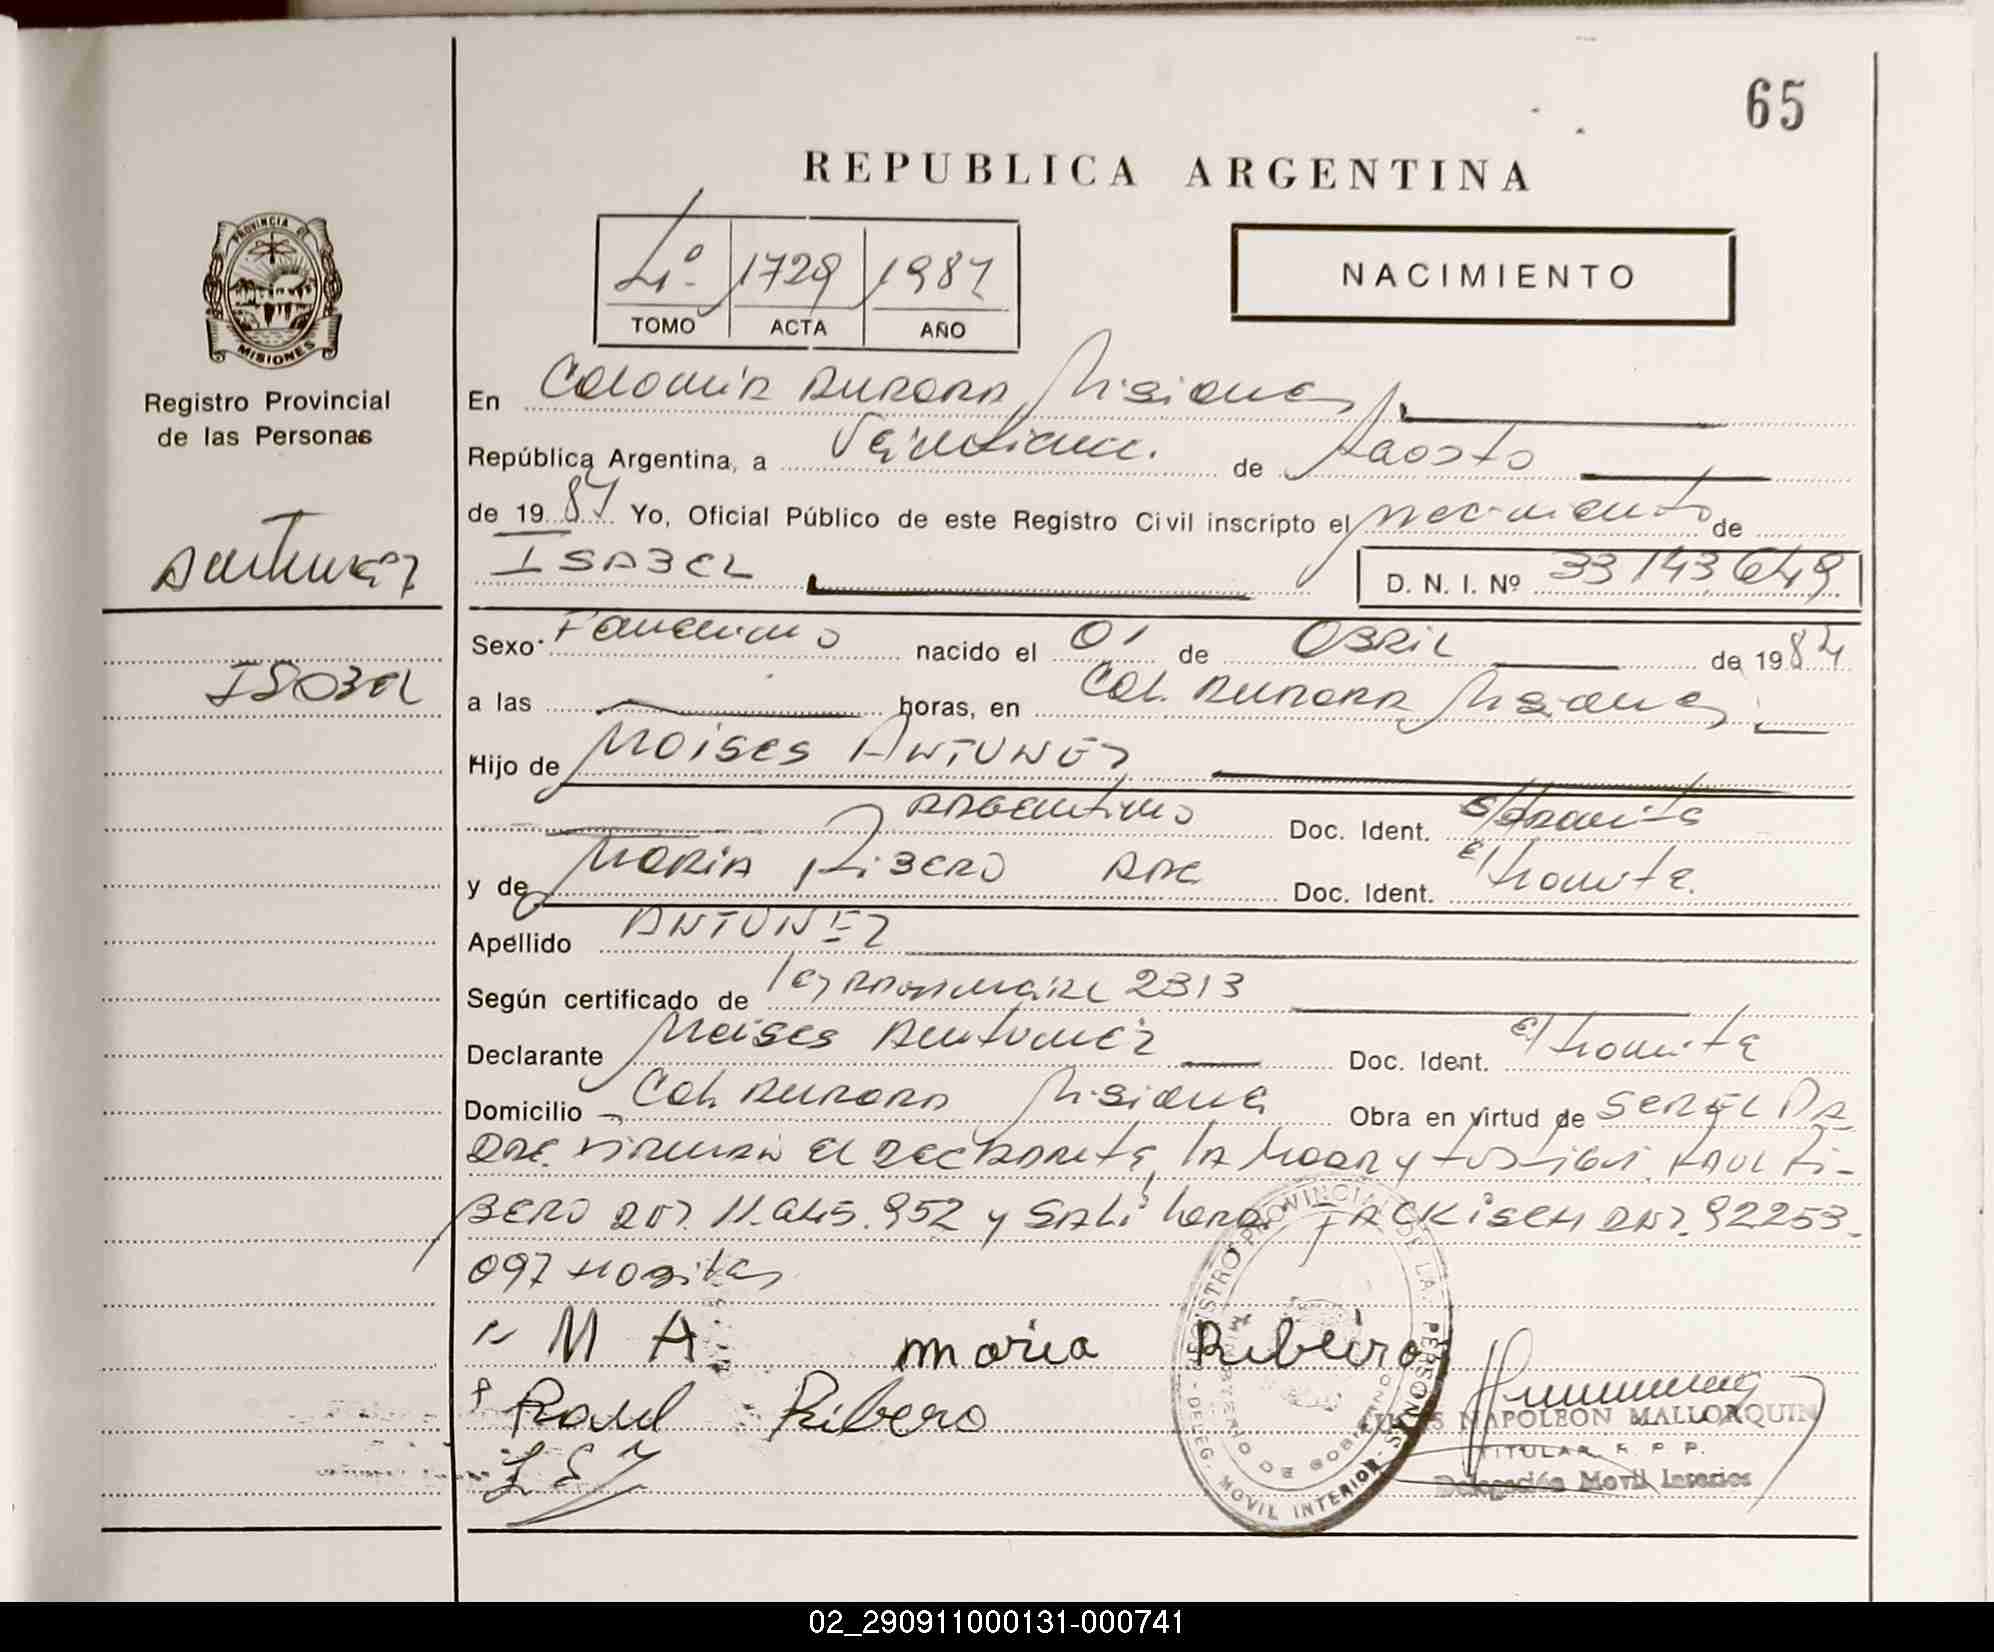 65
REPUBLICA ARGENTINA
PROVINCIA DE
MISIONES
Registro Provincial
de las Personas
4º 1729 1987
TOMO ACTA AÑO
NACIMIENTO
En Colonia Aurora, Misiones
República Argentina, a de Agosto
de 1987 Yo, Oficial Público de este Registro Civil inscripto el nacimiento de
Antunez
ISABEL D. N. I. Nº 33143649
Sexo Femenino nacido el 01 de Abril de 1984
Isabel
a las horas, en Col. Aurora Misiones
Hijo de Moises ANTUNEZ
Argentino Doc. Ident. E/tramite
y de Maria Ribero ARG Doc. Ident. E/tramite.
Apellido ANTUNEZ
Según certificado de Ley 2313
Declarante Moises Antunez Doc. Ident. E/tramite
Domicilio Col. Aurora Misiones Obra en virtud de SER EL PA
DRE. Firman el declarante, la Madre y testigos, RAUL RI-
BERO DNI. 11.945.952 y JACKISCH DNI. 92253.
097
M A. maria Ribeiro
Raul Ribero
REGISTRO PROVINCIAL DE LAS PERSONAS - DELEG. MOVIL INTERIOR -
MINISTERIO DE GOBIERNO
NAPOLEON MALLORQUIN
TITULAR F. P. P.
Delegación Movil Interior
02_290911000131-000741